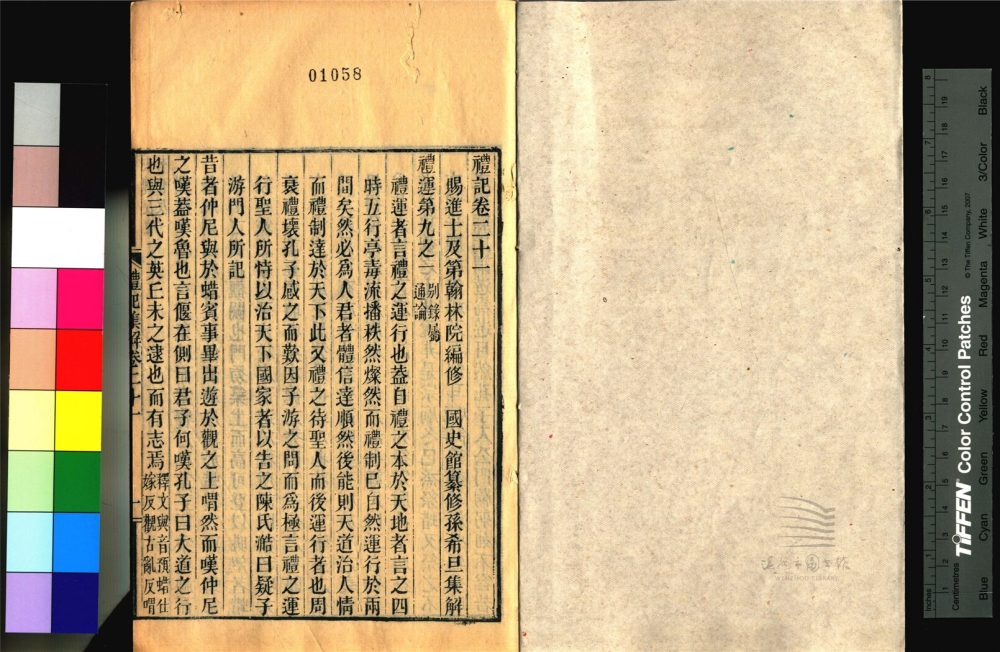 01058
禮記卷二十一
賜進士及第翰林院編修 國史館纂修孫希旦集解
禮運第九之一 別錄屬通論
禮運者言禮之運行也蓋自禮之本於天地者言之四
時五行亭毒流播秩然燦然而禮制已自然運行於兩
間矣然必爲人君者體信達順然後能則天道治人情
而禮制達於天下此又禮之待聖人而後運行者也周
衰禮壞孔子感之而歎因子游之問而爲極言禮之運
行聖人所恃以治天下國家者以告之陳氏澔曰疑子
游門人所記
昔者仲尼與於蜡賓事畢出遊於觀之上喟然而嘆仲尼
之嘆蓋嘆魯也言偃在側曰君子何嘆孔子曰大道之行
也與三代之英丘未之逮也而有志焉 釋文與音預蜡仕
嫁反觀古亂反喟
禮記集解卷二十一
一
WENZHOU LIBRARY
Inches
Centimetres
TIFFEN Color Control Patches
© The Tiffen Company, 2007
Blue
Cyan
Green
Yellow
Red
Magenta
White
3/Color
Black